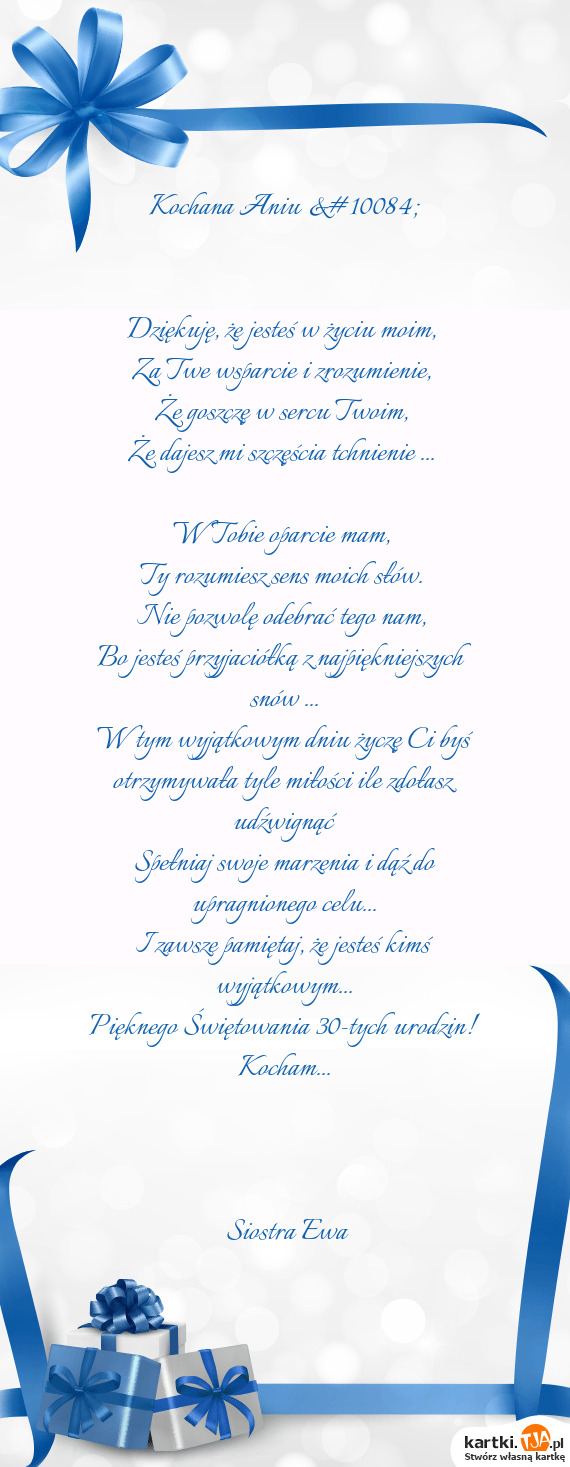 Kochana Aniu &#10084;
Dziękuję, że jesteś w życiu moim,
Za Twe wsparcie i zrozumienie,
Że goszczę w sercu Twoim,
Że dajesz mi szczęścia tchnienie ...
W Tobie oparcie mam,
Ty rozumiesz sens moich słów.
Nie pozwolę odebrać tego nam,
Bo jesteś przyjaciółką z najpiękniejszych
snów ...
W tym wyjątkowym dniu życzę Ci byś
otrzymywała tyle miłości ile zdołasz
udźwignąć
Spełniaj swoje marzenia i dąź do
upragnionego celu...
I zawsze pamiętaj, że jesteś kimś
wyjątkowym...
Pięknego Świętowania 30-tych urodzin!
Kocham...
Siostra Ewa
kartki.TJA.pl
Stwórz własną kartkę